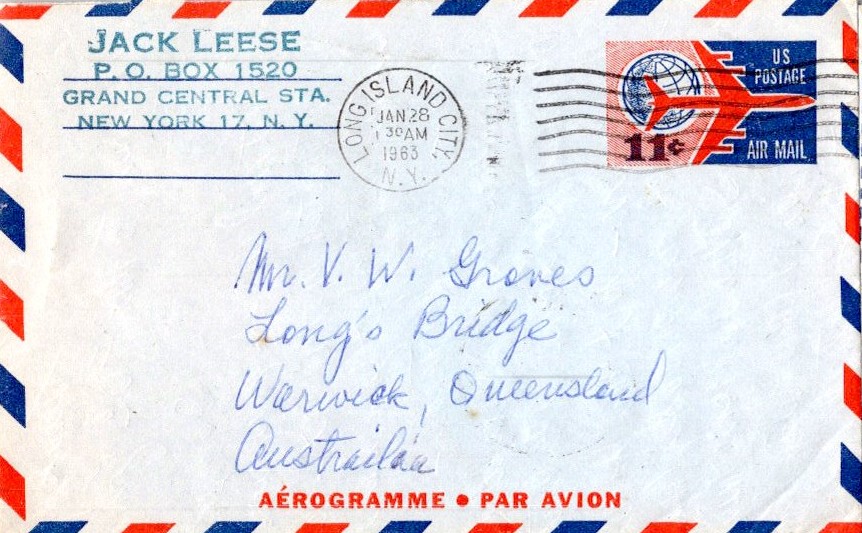 JACK LEESE
P. O. BOX 1520
GRAND CENTRAL STA.
NEW YORK 17, N. Y.
LONG ISLAND CITY,
JAN 28
30 AM
1963
N.Y.
US
POSTAGE
11¢
AIR MAIL
Mr. V. W. Groves
Long's Bridge
Warwick, Queensland
Austrailia
AÉROGRAMME • PAR AVION